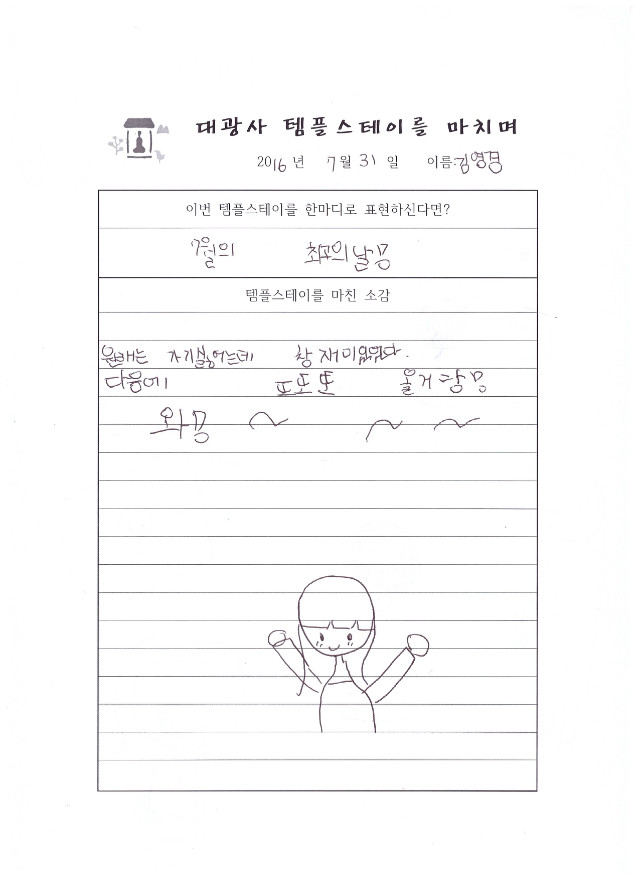 대광사 템플스테이를 마치며
2016년 7월 31일 이름:김영경
이번 템플스테이를 한마디로 표현하신다면?
7월의 최고의날
템플스테이를 마친 소감
원래는 자기싫어는데 창재미있있다.
다음에 또또또 올거
와